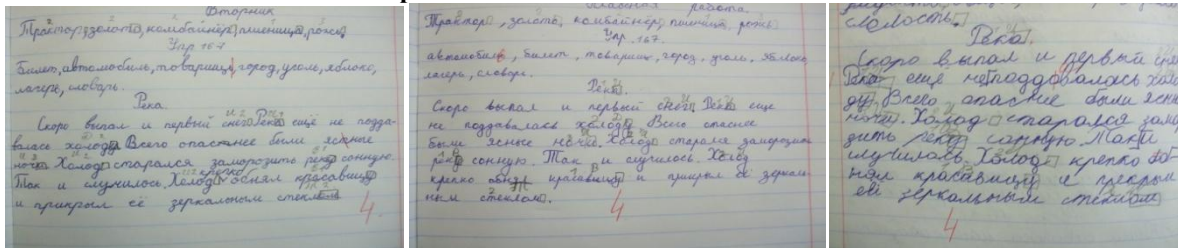 Вторник
Трактор, золото, комбайнёр, пшеница, рожь,
Упр 167
Билет, автомобиль, товарищ, город, уголь, яблоко,
лагерь, словарь.
Река.
Скоро выпал и первый снег. Река ещё не подда-
валась холоду. Всего опастнее были ясные
ночи. Холод старался заморозить реку сонную.
Так и случилось. Холод крепко обнял красавицу
и прикрыл её зеркальным стеклом
4
работа.
Трактор, золото, комбайнёр, пшеница, рожь
Упр. 167.
автомобиль, билет, товарищ, город, уголь, яблоко,
лагерь, словарь.
Река.
Скоро выпал и первый снег. Река еще
не поддавалась холоду. Всего опаснее
были ясные ночи. Холод старала заморозить
реку сонную. Так и случилось. Холод
крепко обнял красавицу и прикрыл её зеркаль-
ным стеклом.
4
Река.
Скоро выпал и первый
Река ещё не поддавалась холо
ду. Всего опаснее были ясные
ночи. Холод старался замо
дить реку сонную. Так и
случилось. Холод крепко об
нял красавицу и прекрыл
её зеркальным стеклом
4